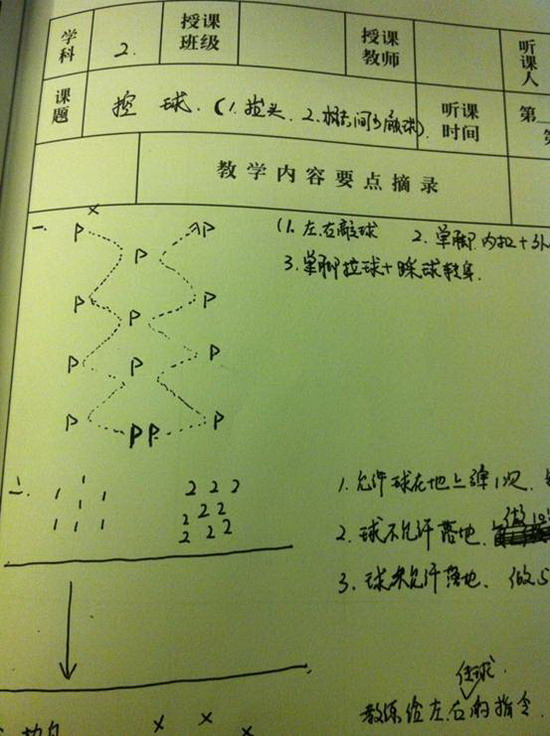 学科 2. 授课班级 授课教师 听课人
课题 控球.(1.抬头. 2. 听课时间 第
教学内容要点摘录
一、 (1. 左.右敲球 2. 单脚内扣+外
3. 单脚拉球+踩球转身.
x
P P P
P P P
P P P
P PP P
二. 1. 允许球在地上弹1次.
1 1 1 1 1 1 1
2 2 2 2 2 2 2 2 2
2. 球不允许落地. 做10
3. 球不允许落地. 做5
教练给左.右的指令
x x x